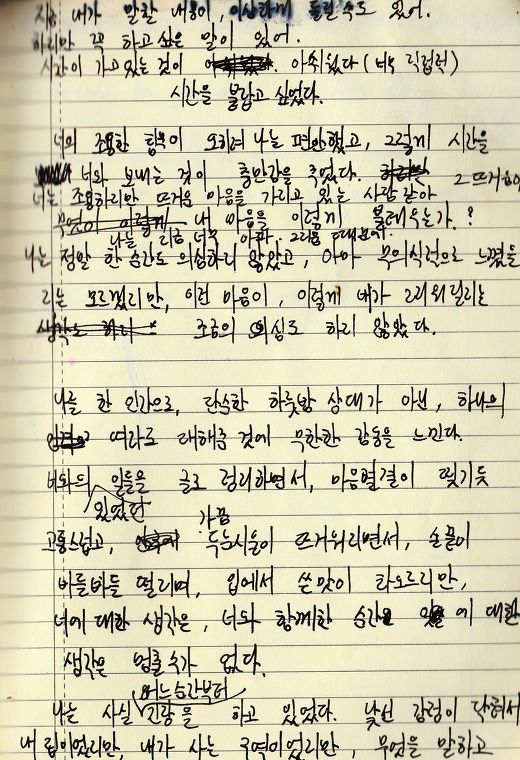 지금 내가 말할 내용이, 이상하게 들릴 수도 있어.
하지만 꼭 하고싶은 말이 있어.
시간이 가고있는 것이 아쉬웠다 (너무 직접적)
시간을 붙잡고 싶었다.
너의 조용한 침묵이 오히려 나는 편안했고, 그렇게 시간을
너와 보내는 것이 충만감을 주었다.
너는 조용하지만 뜨거운 마음을 가지고 있는 사람 같아 그 뜨거움이
무엇이 이렇게 내 마음을 이렇게 불태우는가?
나는 지금 너무 아파. 그리움 때문에.
나는 정말 한 순간도 의심하지 않았고, 아마 무의식적으로 느꼈을
지는 모르겠지만, 이런 마음이, 이렇게 내가 괴로워질지는
생각도 하지 조금의 의심도 하지 않았다.
나를 한 인간으로, 단순한 하룻밤 상대가 아닌, 하나의
여자로 대해준 것에 무한한 감동을 느낀다.
너와의 일들을 글로 정리하면서, 마음결결이 찢기듯
있었던 가끔
고통스럽고, 두눈시울이 뜨거워지면서, 손끝이
바들바들 떨리며, 입에서 쓴맛이 차오르지만,
너에 대한 생각은, 너와 함께한 순간 에 대한
생각은 멈출 수가 없다.
어느순간부터
나는 사실 긴장을 하고 있었다. 낯선 감정이 닥쳐서
내 집이었지만, 내가 사는 구역이었지만, 무엇을 말하고